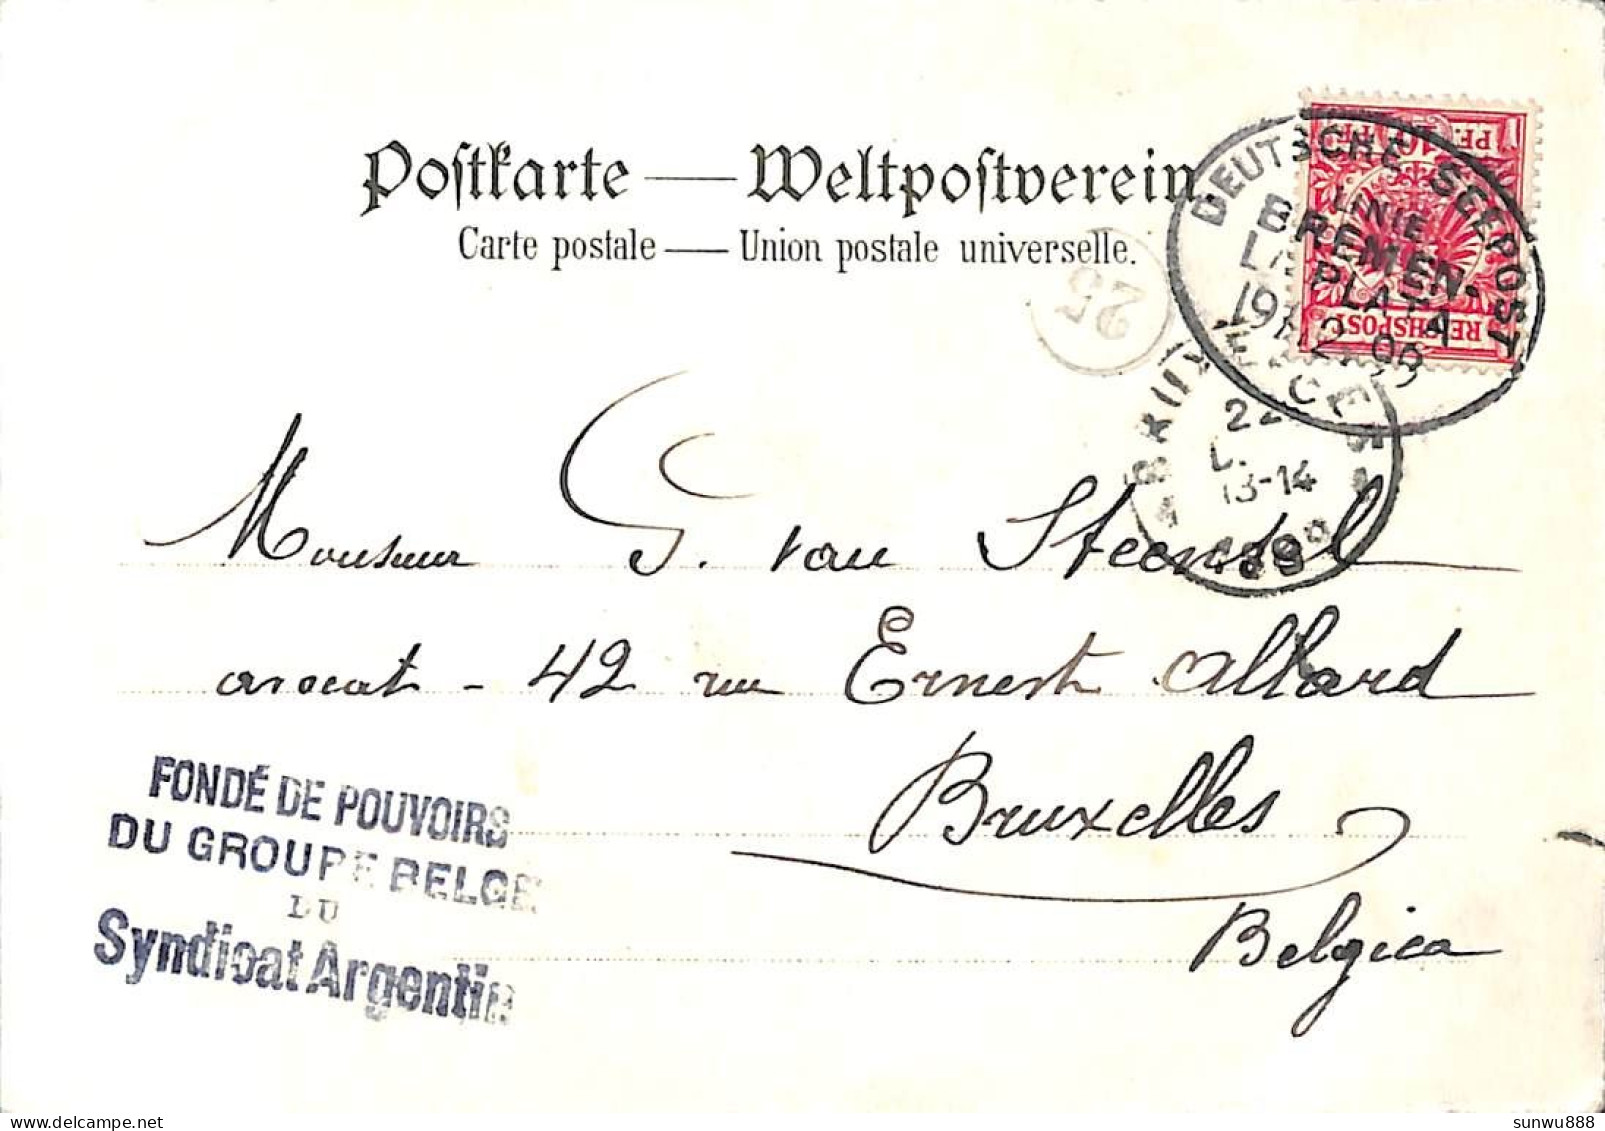 Postkarte — Weltpostverein
Carte postale — Union postale universelle.
25
DEUTSCHE SEEPOST
LINIE
BREMEN.
LA PLATA
PF. 10 PF.
REICHSPOST
BRUXELLES
22
13-14
Monsieur G. van Steensel
avocat - 42 rue Ernest Allard
Bruxelles
Belgica
FONDÉ DE POUVOIRS
DU GROUPE BELGE
DU
Syndicat Argentin
delcampe.net
sunwu888